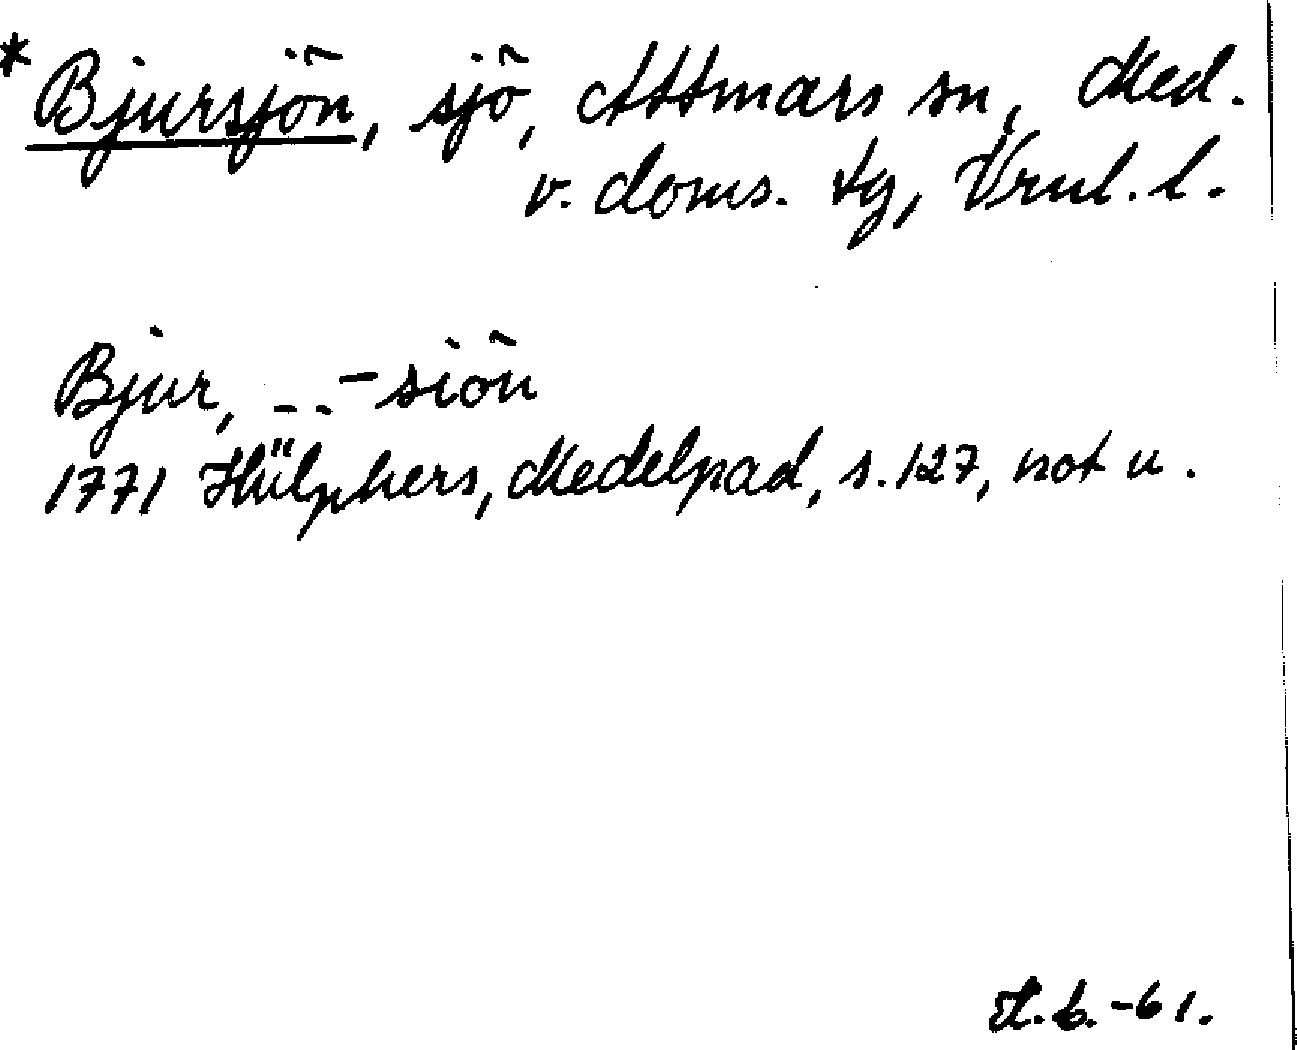 * Bjursjön, sjö, Attmars sn, Med.
v. doms. tg, Vrnl. l.
Bjur, - - -siön
1771 Hülphers, Medelpad, s. 127, not u.
-61.